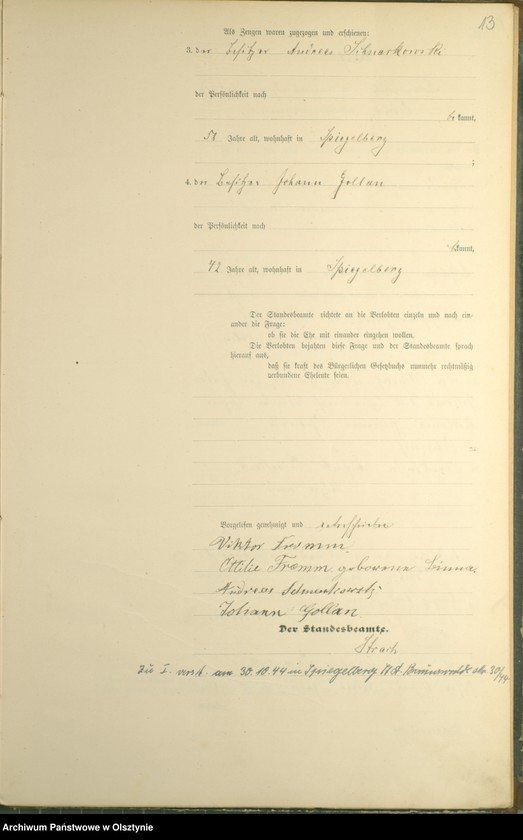 13
Als Zeugen waren zugezogen und erschienen:
3. der Besitzer Andreas
der Persönlichkeit nach
kannt,
58 Jahre alt, wohnhaft in Spiegelberg
;
4. der Besitzer Johann Gollan
der Persönlichkeit nach
kannt,
42 Jahre alt, wohnhaft in Spiegelberg
Der Standesbeamte richtete an die Verlobten einzeln und nach ein-
ander die Frage:
ob sie die Ehe mit einander eingehen wollen.
Die Verlobten bejahten diese Frage und der Standesbeamte sprach
hierauf aus,
daß sie kraft des Bürgerlichen Gesetzbuchs nunmehr rechtmäßig
verbundene Eheleute seien.
Vorgelesen genehmigt und unterschrieben
Viktor Fromm
Ottilie Fromm geborene
Andreas
Johann Gollan
Der Standesbeamte.
am 30.10.44 in Spiegelberg
Archiwum Państwowe w Olsztynie